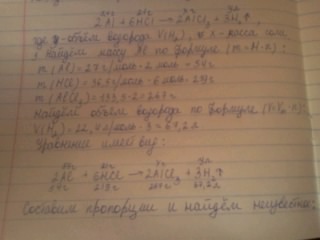 2Al + 6HCl → 2AlCl₃ + 3H₂↑,
где y-объём водорода V(H₂), x-масса соли,
найдём массу Al по формуле (m=M·n):
m(Al)=27г/моль·2моль=54г
m(HCl)=36,5г/моль·6моль=219г
m(AlCl₃)=133,5·2=267г
Найдём объём водорода по формуле
V(H₂)=22,4л/моль·3=67,2л
Уравнение имеет вид:
2Al + 6HCl → 2AlCl₃ + 3H₂↑
54г 219г 267г 67,2л
Составим пропорции и найдём неизвестные: